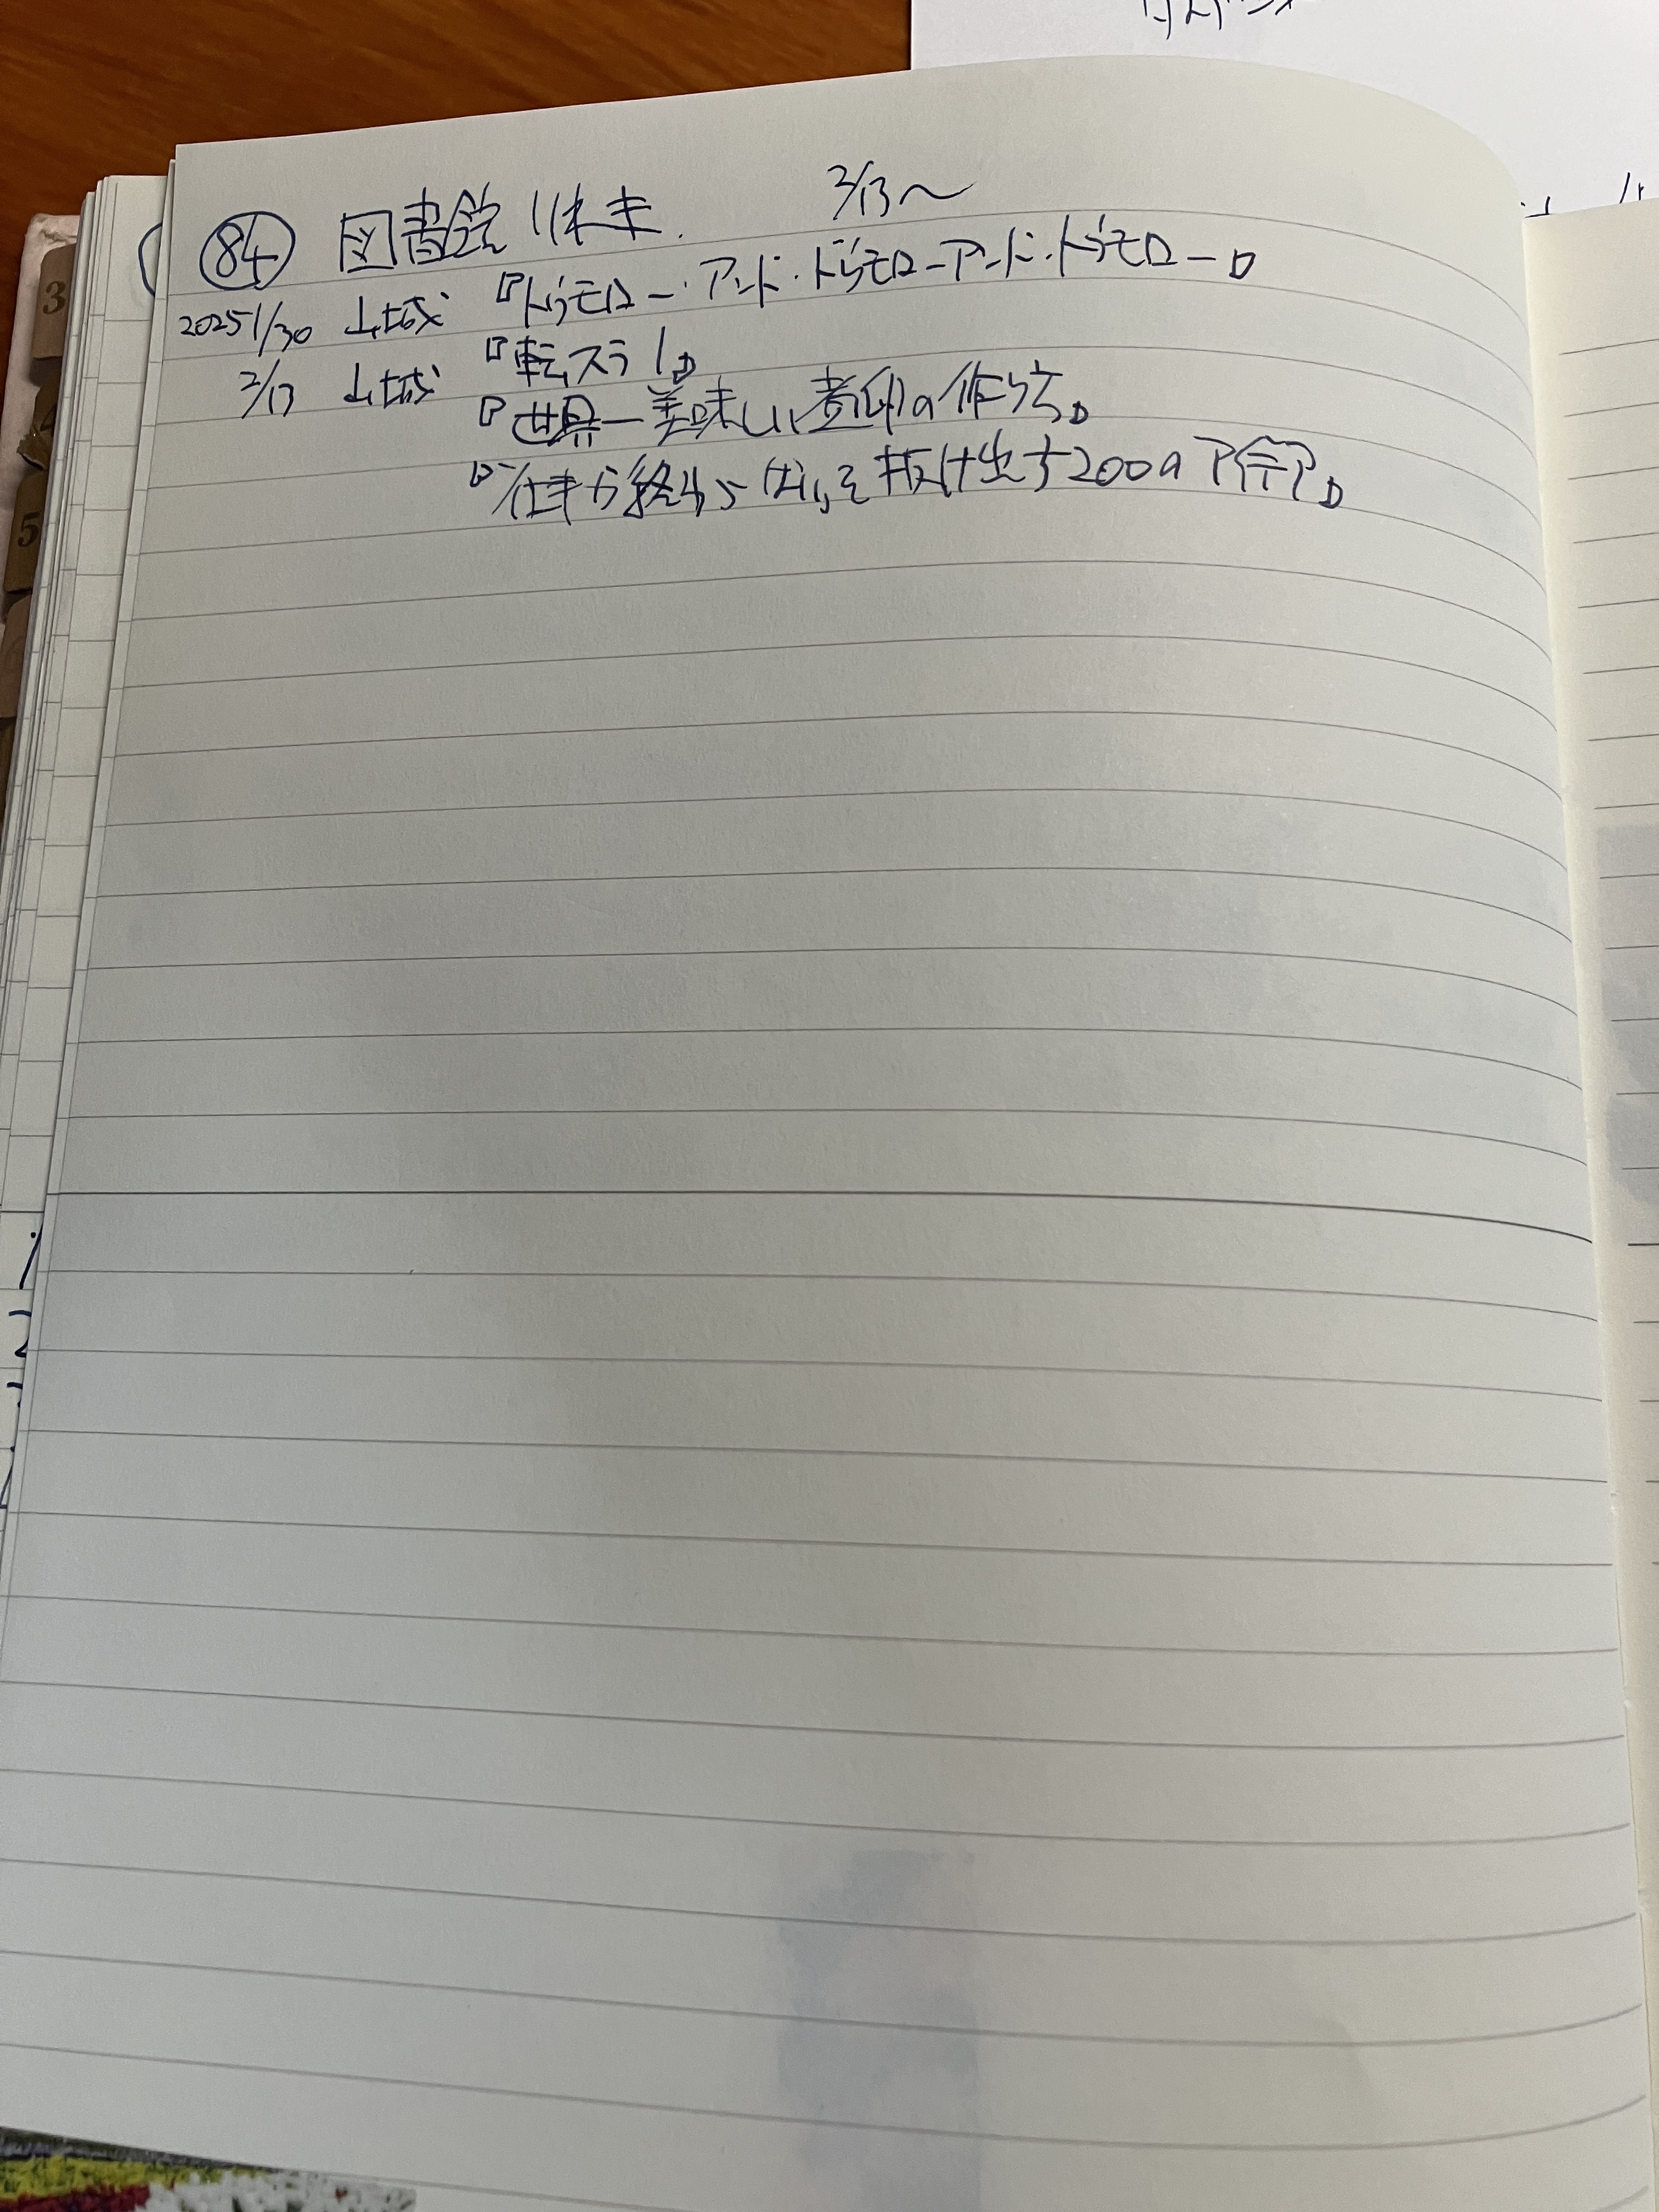 2/13〜
84 図書館
2025 1/30 山城 『トゥモロー・アンド・トゥモロー・アンド・トゥモロー』
2/13 山城 『転スラ1』
『世界一美味しい煮卵の作り方』
『仕事が終わらないを抜け出す200のアイデア』
3
4
5